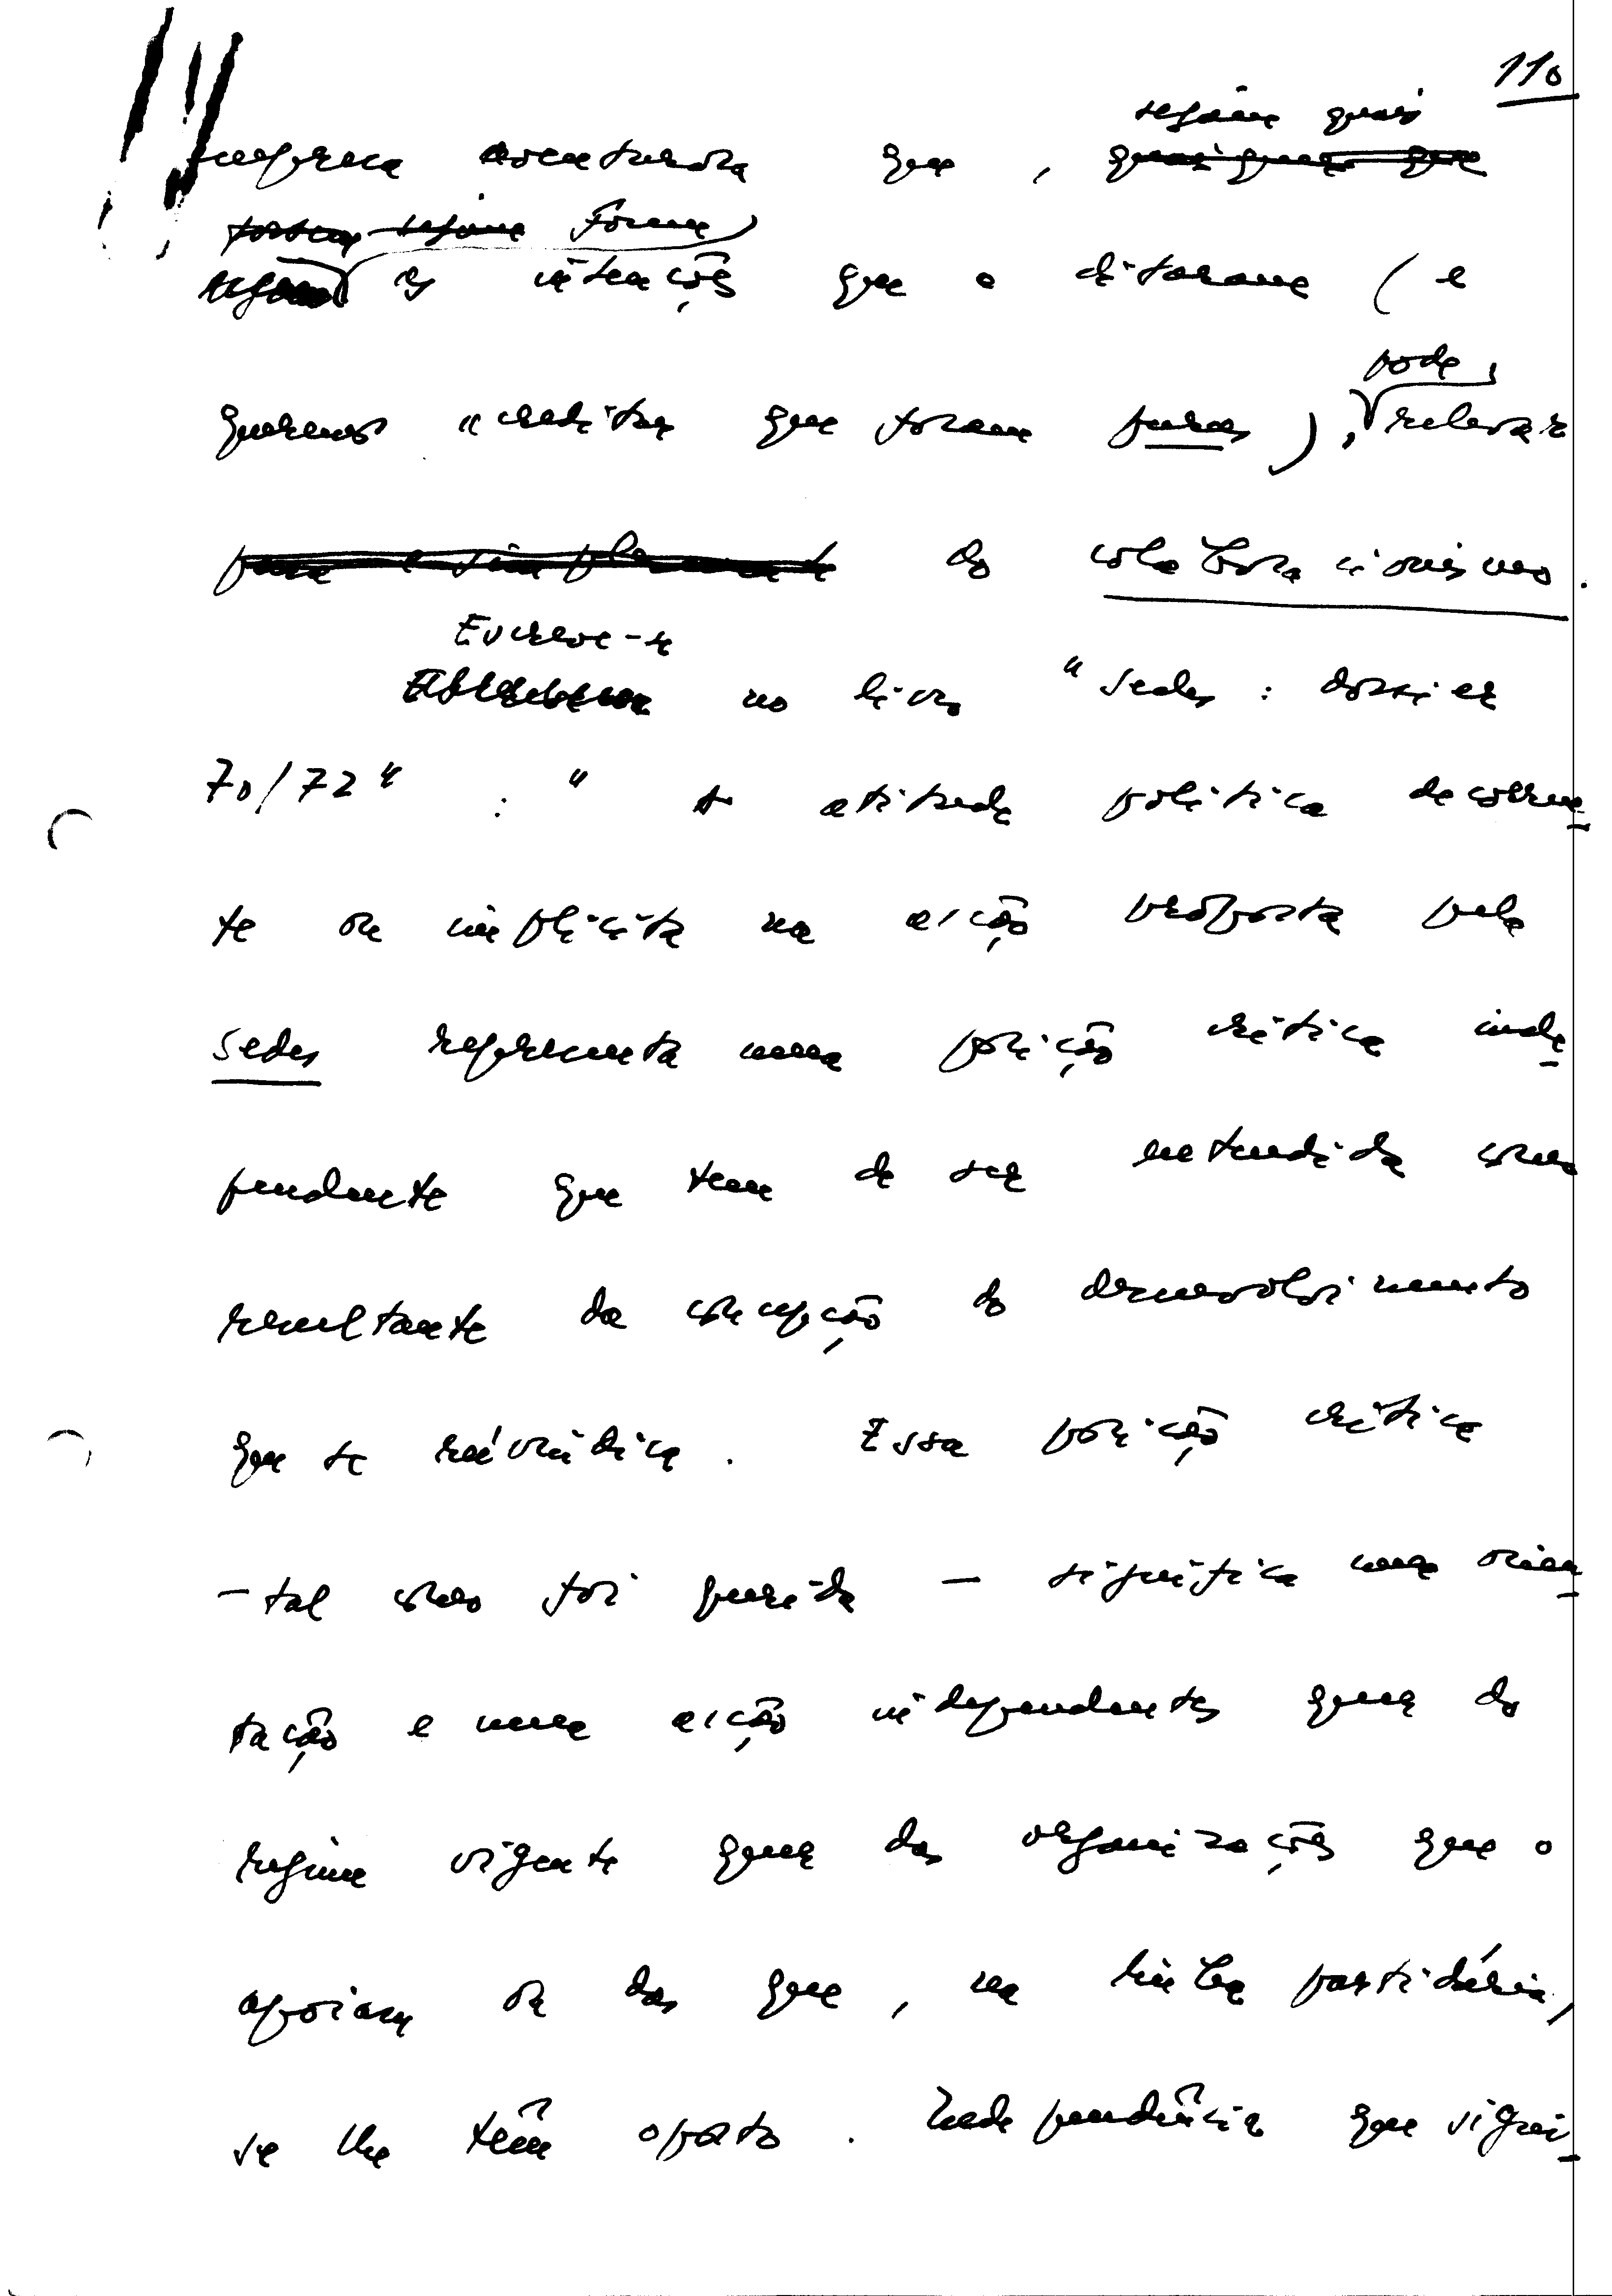 110
sejam quais
empresa aventurosa que , quais quer que
fossem sejam forem
as intenções que a ditaram ( e
pode,
queremos acreditar que foram puras ) , relevar
pura e simplesmente do colaboracionismo.
Escreve-se
no livro " Sedes : dossier
70/72 " : " A atitude política decorren-
te ou implícita na acção proposta pela
Sedes representa uma posição crítica inde-
pendente que tem de ser entendida como
resultante da concepção do desenvolvimento
que se reivindica . Essa posição crítica
- tal como foi querida - significa uma orien-
tação e uma acção independentes quer do
regime vigente quer das organizações que o
apoiam ou das que , na linha partidária,
se lhe têm oposto . Independência que signi-